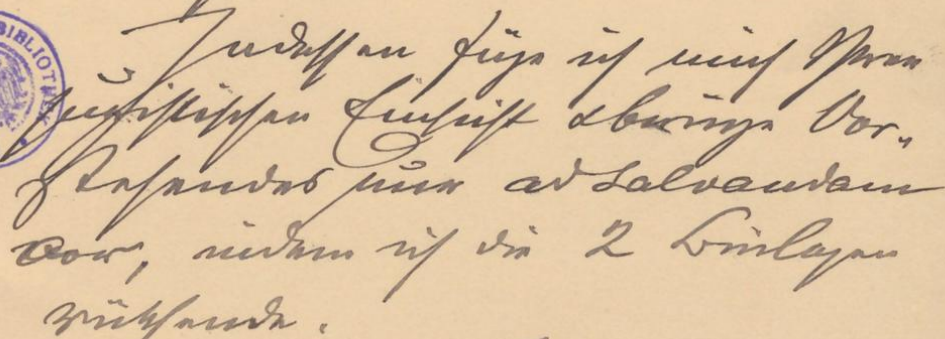 BIBLIOTHEK
Indessen füge ich mich Ihrer
juristischen Einsicht & bringe Vor-
stehendes nur ad salvandam
vor, indem ich die 2 Beilagen
rücksende.